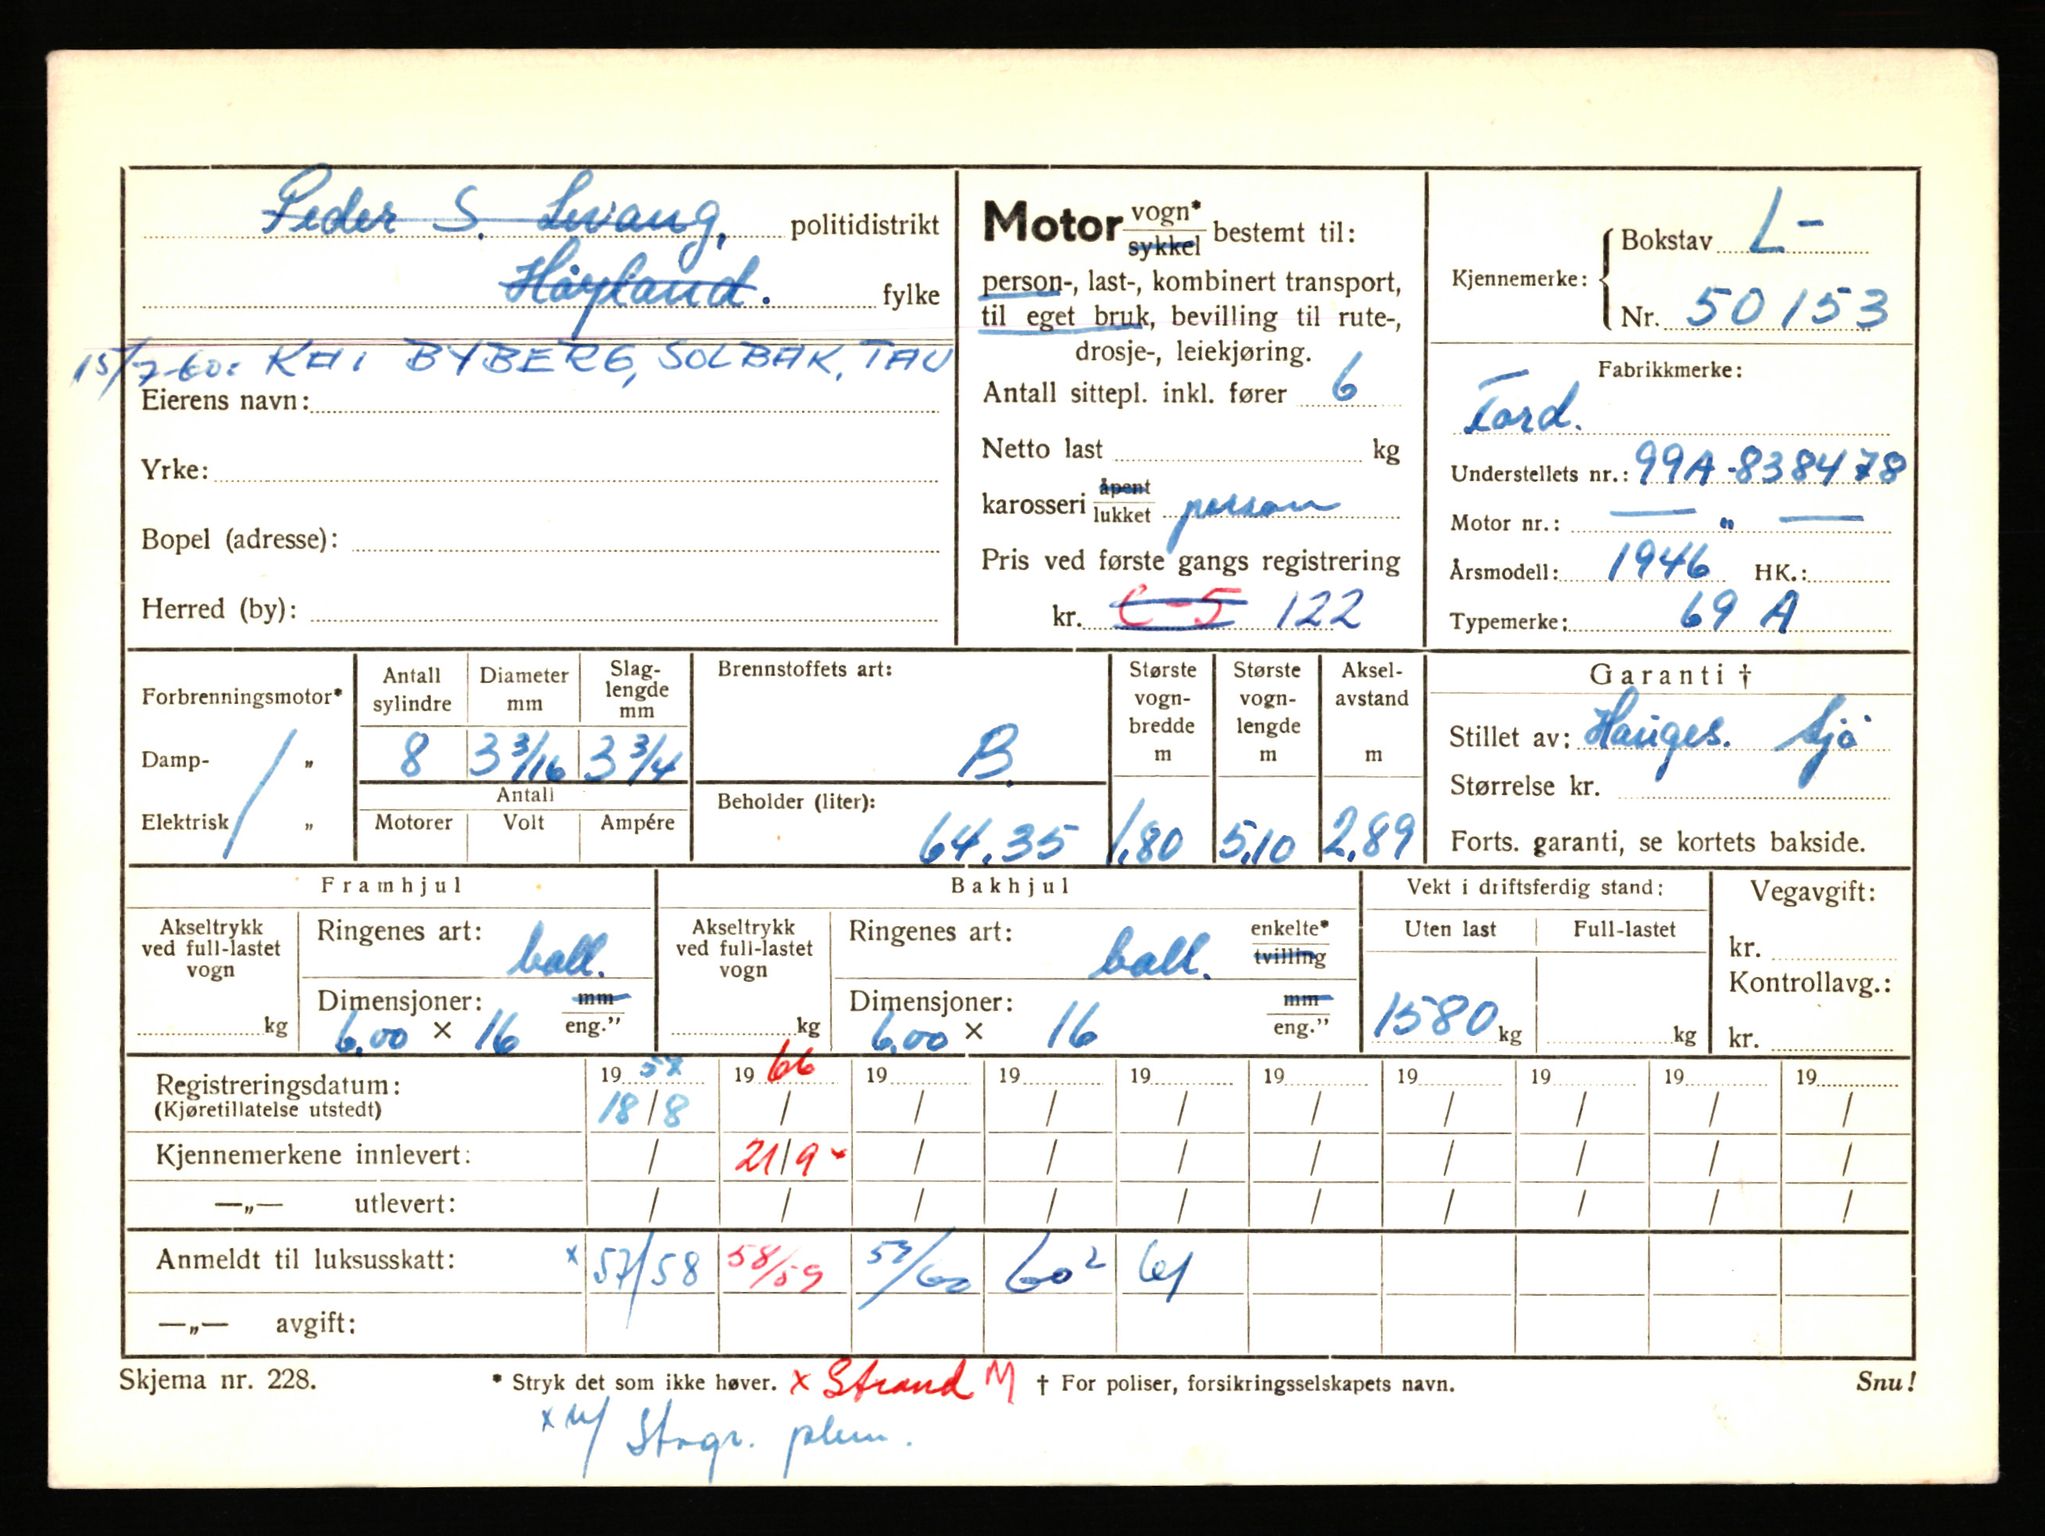 Peder S. Levang, politidistrikt
Høyland. fylke
15/7-60: KAI BYBERG, SOLBAK, TAU
Eierens navn:
Yrke:
Bopel (adresse):
Herred (by):
Motor vogn* sykkel bestemt til:
person-, last-, kombinert transport,
til eget bruk, bevilling til rute-,
drosje-, leiekjøring.
Antall sittepl. inkl. fører 6
Netto last kg
karosseri åpent lukket person
Pris ved første gangs registrering
kr. C-5 122
Kjennemerke:
Bokstav L-
Nr. 50153
Fabrikkmerke:
Ford.
Understellets nr.: 99A-838478
Motor nr.: — „ —
Årsmodell: 1946 HK.:
Typemerke: 69 A
Forbrenningsmotor*
Damp- „
Elektrisk „
Antall sylindre
Diameter mm
Slag- lengde mm
8 3 3/16 3 3/4
Antall
Motorer Volt Ampére
Brennstoffets art:
B.
Beholder (liter):
64.35
Største vogn- bredde m
1.80
Største vogn- lengde m
5.10
Aksel- avstand m
2.89
Garanti †
Stillet av: Hauges. Sjö
Størrelse kr.
Forts. garanti, se kortets bakside.
Framhjul
Akseltrykk ved full-lastet vogn
kg
Ringenes art: ball.
Dimensjoner: mm
6.00 × 16 eng."
Bakhjul
Akseltrykk ved full-lastet vogn
kg
Ringenes art: ball. enkelte* tvilling
Dimensjoner: mm
6.00 × 16 eng."
Vekt i driftsferdig stand:
Uten last Full-lastet
1580 kg kg
Vegavgift:
kr.
Kontrollavg.:
kr.
Registreringsdatum: 19 57 19 66 19 19 19 19 19 19 19 19
(Kjøretillatelse utstedt) 18/8 / / / / / / / / /
Kjennemerkene innlevert: / 21/9 / / / / / / / /
—„— utlevert: / / / / / / / / / /
Anmeldt til luksusskatt: x 57/58 58/59 59/60 60² 61
—„— avgift:
Skjema nr. 228. * Stryk det som ikke høver. x Strand M † For poliser, forsikringsselskapets navn. Snu!